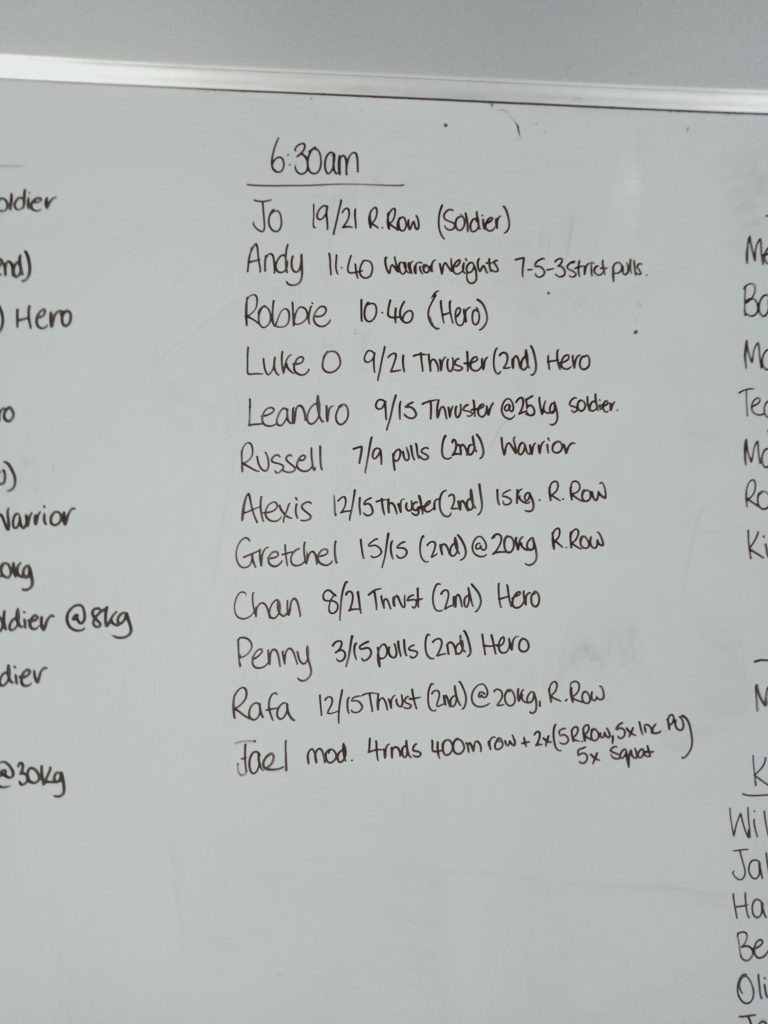 6:30am
Jo 19/21 R.Row (Soldier)
Andy 11.40 Warrior Weights 7-5-3 strict pulls.
Robbie 10.46 (Hero)
Luke O 9/21 Thruster (2nd) Hero
Leandro 9/15 Thruster @25kg Soldier.
Russell 7/9 pulls (2nd) Warrior
Alexis 12/15 Thruster (2nd) 15kg. R.Row
Gretchel 15/15 (2nd) @20kg R.Row
Chan 8/21 Thrust (2nd) Hero
Penny 3/15 pulls (2nd) Hero
Rafa 12/15 Thrust (2nd) @20kg, R.Row
Jael mod. 4rnds 400m row + 2x(5R.Row, 5x Inc PU)
5x Squat
oldier
nd)
) Hero
ro
)
Warrior
0kg
ldier @8kg
dier
@30kg
Me
Bo
Mo
Ro
Ki
M
K
Wil
Ja
Ha
Be
Oli